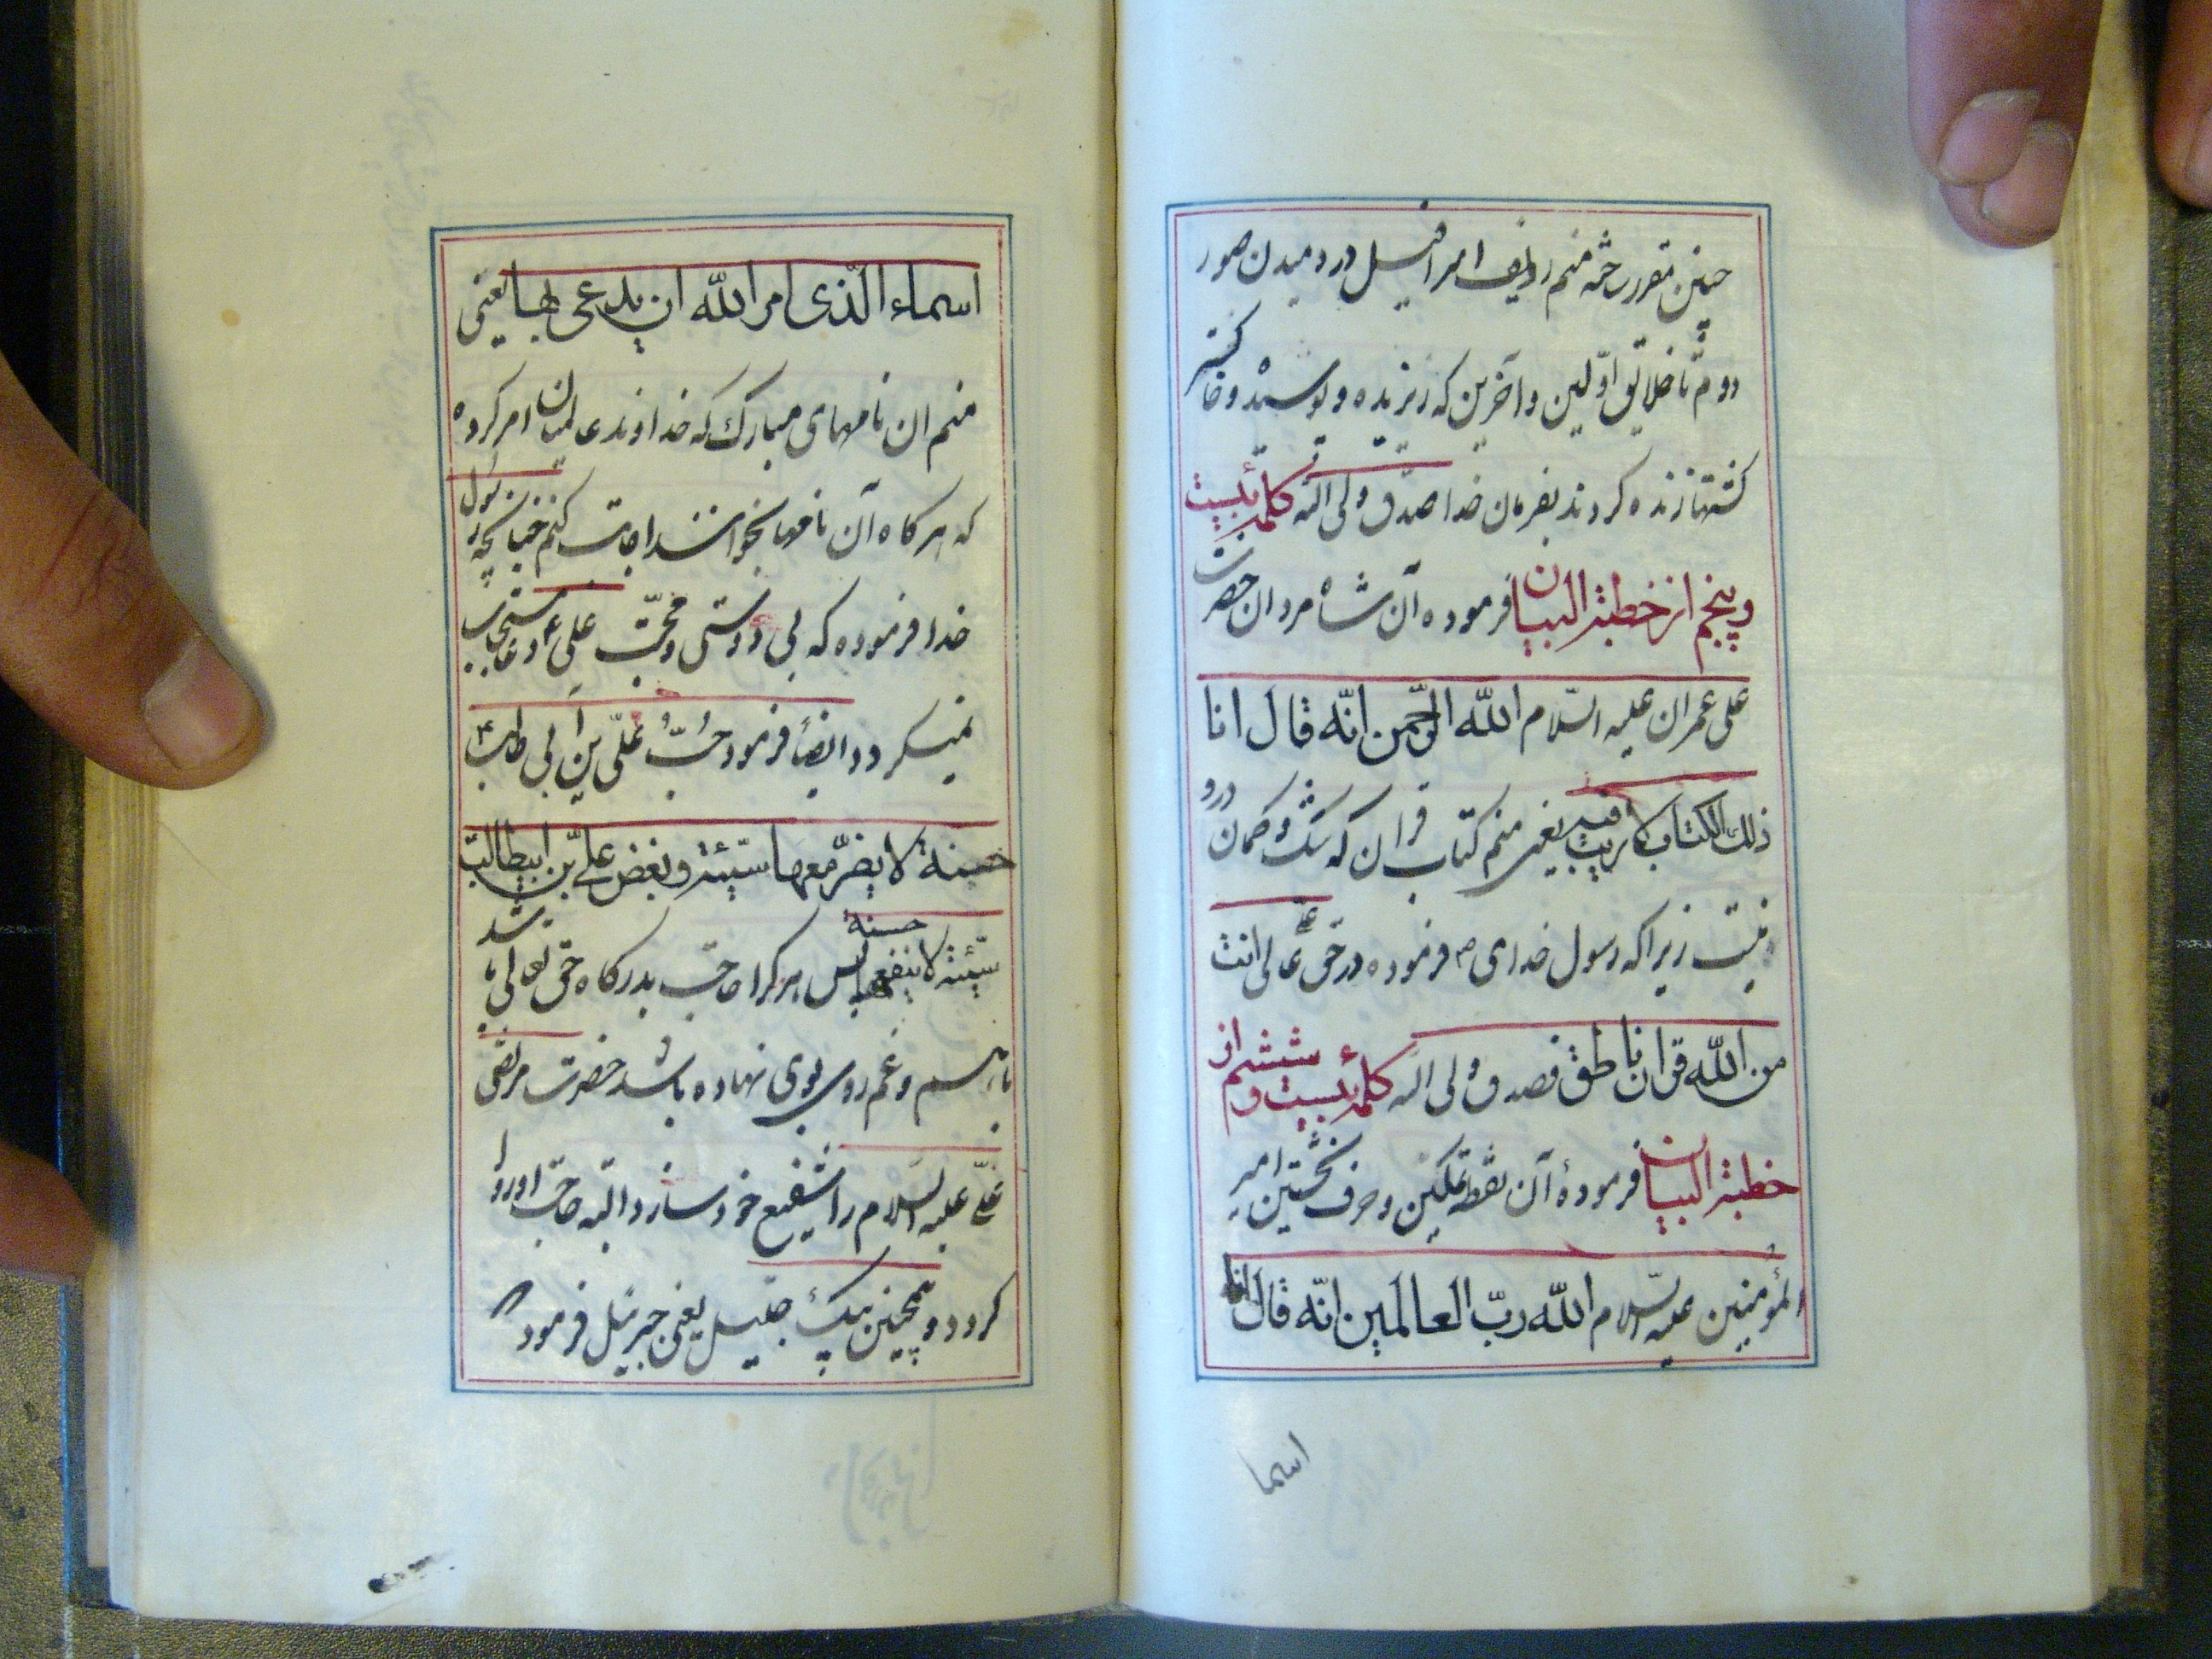 چنین مقرر شده منم ردیف اسرافیل در دمیدن صور
دوم تا خلایق اولین و آخرین که ریزیده و پوسیده و خاکستر
گشتها زنده کردند بفرمان خدا صدق ولی الله کلمه بیست
و پنجم از خطبة البیان فرموده آن شاه مردان حضرت
علی عمران علیه السّلام اللّه الرّحمن انّه قال انا
ذلك الکتاب لا ریب فیه یعنی منم کتاب قران که شک و گمان درو
نیست زیرا که رسول خدای ص فرموده در حق علی انت
من اللّه قران ناطق فصدق ولی الله کلمه بیست و ششم از
خطبة البیان فرمودهٔ آن نقطه تمکین و حرف نخستین امیر
المؤمنین علیه السّلام اللّه ربّ العالمین انّه قال انا
اسما
اسماء الّذی امر اللّه ان یدعی بها یعنی
منم ان نامهای مبارک که خداوند عالمیان امر کرده
که هر کاه آن نامها بخوانند اجابت کنم چنانچه رسول
خدا فرموده که بی دوستی و محبّت علی ع دعا مستجاب
نمیکردد و ایضاً فرمود حُبُّ علّی بن اَبی طالب ع
حسنة لا یضرّ معها سیّئة و بغض علیّ بن ابیطالب
سیّئة لا ینفع معها حسنة پس هر کرا حاجت بدرکاه حق تعالی باشد
یا ترسم و غم روی بوی نهاده باشد حضرت مرتضی
علّی علیه السّلام را شفیع خود سازد البته حاجت او روا
کردد و همچنین پیک جلیل یعنی جبرئیل فرمود